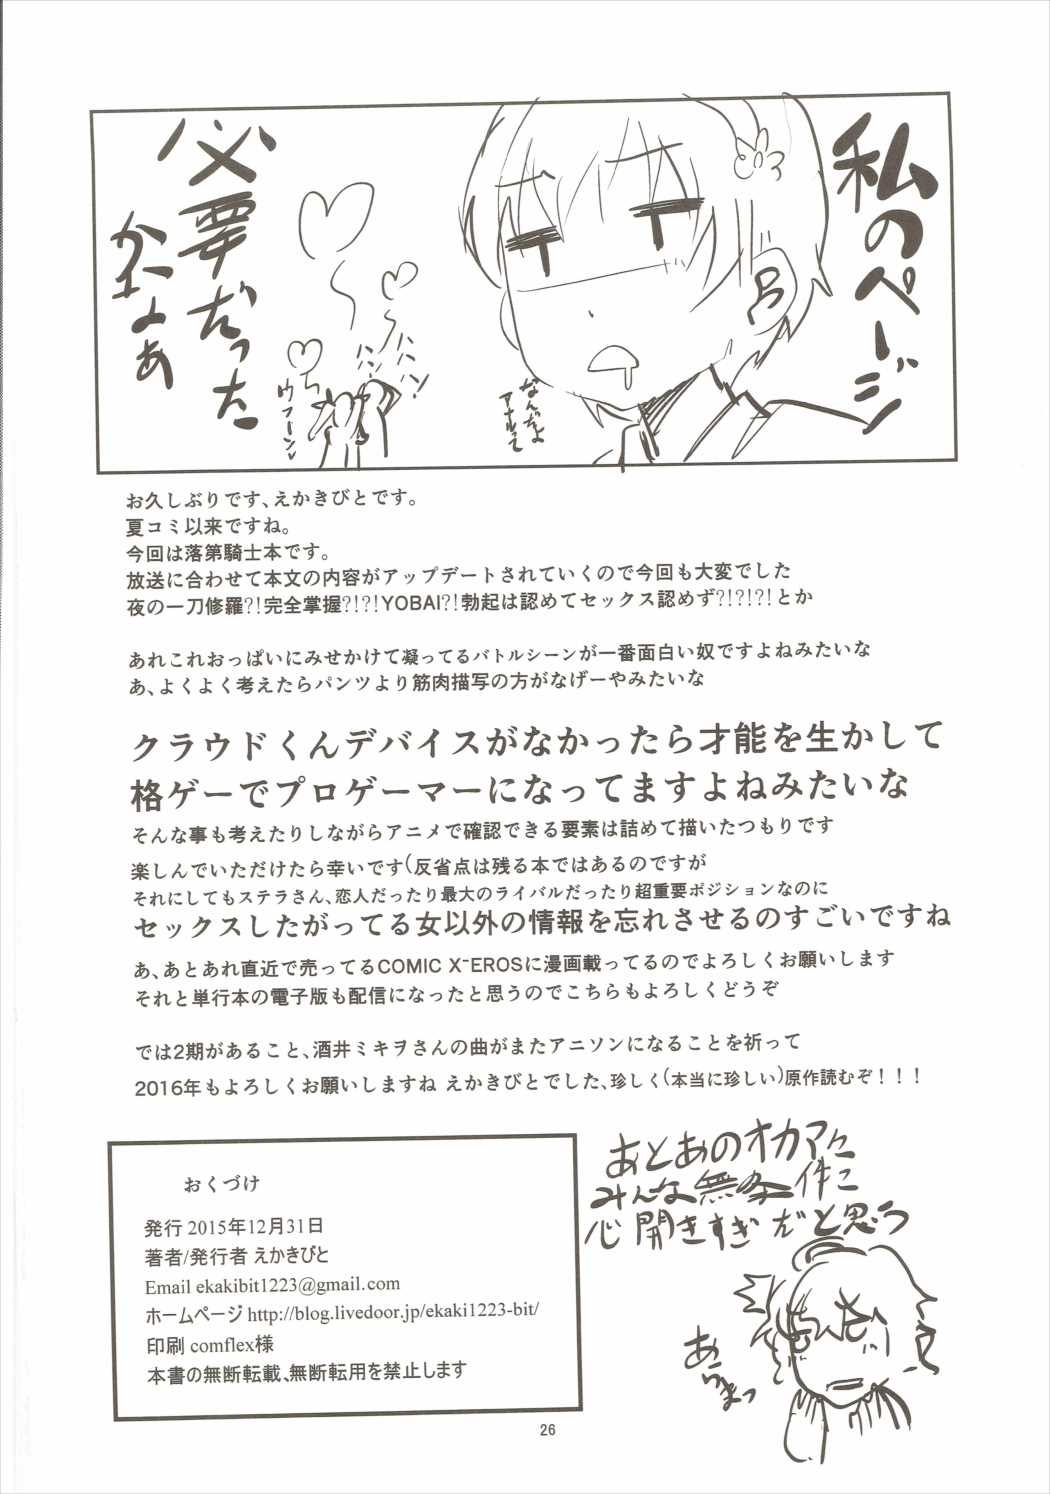 私のページ
必要だった
かなぁ
なんだよ
アナルって
ハン
ハハン!
ウフーン
お久しぶりです、えかきびとです。
夏コミ以来ですね。
今回は落第騎士本です。
放送に合わせて本文の内容がアップデートされていくので今回も大変でした
夜の一刀修羅?!完全掌握?!?!YOBAI?!勃起は認めてセックス認めず?!?!?!とか
あれこれおっぱいにみせかけて凝ってるバトルシーンが一番面白い奴ですよねみたいな
あ、よくよく考えたらパンツより筋肉描写の方がなげーやみたいな
クラウドくんデバイスがなかったら才能を生かして
格ゲーでプロゲーマーになってますよねみたいな
そんな事も考えたりしながらアニメで確認できる要素は詰めて描いたつもりです
楽しんでいただけたら幸いです(反省点は残る本ではあるのですが
それにしてもステラさん、恋人だったり最大のライバルだったり超重要ポジションなのに
セックスしたがってる女以外の情報を忘れさせるのすごいですね
あ、あとあれ直近で売ってるCOMIC X-EROSに漫画載ってるのでよろしくお願いします
それと単行本の電子版も配信になったと思うのでこちらもよろしくどうぞ
では2期があること、酒井ミキヲさんの曲がまたアニソンになることを祈って
2016年もよろしくお願いしますね えかきびとでした、珍しく(本当に珍しい)原作読むぞ！！！
おくづけ
発行 2015年12月31日
著者/発行者 えかきびと
Email ekakibit1223@gmail.com
ホームページ http://blog.livedoor.jp/ekaki1223-bit/
印刷 comflex様
本書の無断転載、無断転用を禁止します
あとあのオカマに
みんな無条件に
心開きすぎだと思う
あらまっ
26